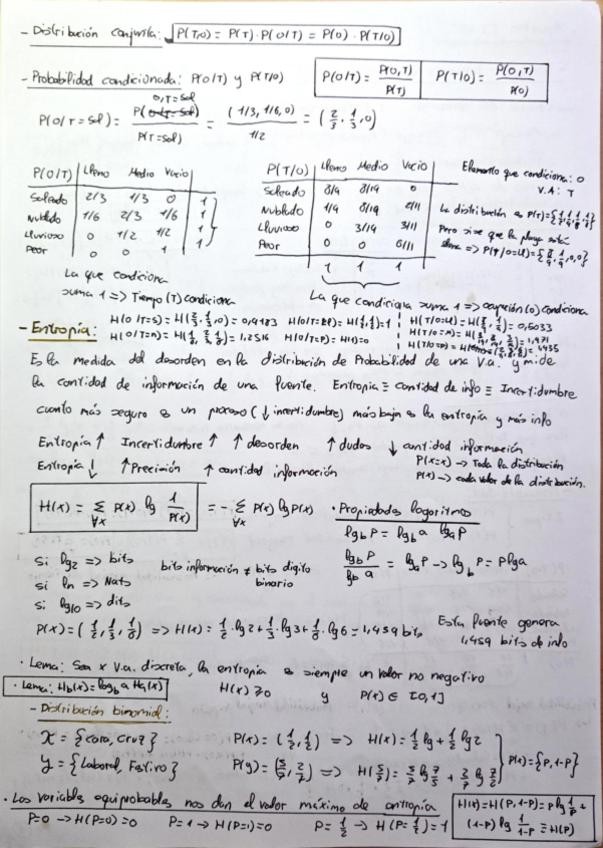 - Distribución conjunta: P(T,O) = P(T) · P(O/T) = P(O) · P(T/O)
- Probabilidad condicionada: P(O/T) y P(T/O)
P(O/T) = P(O,T) / P(T)
P(T/O) = P(O,T) / P(O)
P(O/T=sol) = P(O,T=sol) / P(T=sol) = (1/3, 1/6, 0) / 1/2 = (2/3, 1/3, 0)
P(O/T) Lleno Medio Vacio
Soleado 2/3 1/3 0 1
Nublado 1/6 2/3 1/6 1
Lluvioso 0 1/2 1/2 1
Peor 0 0 1 1
La que condiciona
suma 1 => Tiempo (T) condiciona
P(T/O) Lleno Medio Vacio
Soleado 8/9 8/19 0
Nublado 1/9 8/19 2/11
Lluvioso 0 3/19 3/11
Peor 0 0 6/11
1 1 1
La que condiciona suma 1 => ocupación (O) condiciona
Elemento que condiciona: O
V.A: T
La distribución es P(T)=
Pero si se que la playa está
- Entropía:
H(O/T=S) = H(2/3, 1/3, 0) = 0,9183
H(O/T=N) = H(1/6, 2/3, 1/6) = 1,2516
H(O/T=P) = H(1) = 0
Es la medida del desorden en la distribución de Probabilidad de una V.a. y mide
la cantidad de información de una fuente. Entropía ≡ cantidad de info ≡ Incertidumbre
cuanto más seguro es un proceso (↓ incertidumbre) más baja es la entropía y más info
Entropía ↑ Incertidumbre ↑ ↑ desorden ↑ dudas ↓ cantidad información
Entropía ↓ ↑ Precisión ↑ cantidad información
P(X=x) -> Toda la distribución
P(x) -> cada valor de la distribución.
H(x) = Σ∀x P(x) lg 1/P(x) = - Σ∀x P(x) lg P(x)
· Propiedades logaritmos
lg_b P = lg_b a lg_a P
lg_b P / lg_b a = lg_a P -> lg_b P = P lg a
si lg2 => bits
si ln => Nats
si lg10 => dits
bits información ≠ bits digito
binario
P(x) = (1/2, 1/3, 1/6) => H(x) = 1/2 · lg 2 + 1/3 · lg 3 + 1/6 · lg 6 = 1,459 bits
Esta fuente genera
1,459 bits de info
· Lema: Sea x v.a. discreta, la entropía es siempre un valor no negativo
H(x) ≥ 0 y P(x) ∈ [0,1]
· Lema: H_b(x) = log_b a H_a(x)
- Distribución binomial:
X = {cara, cruz} P(x) = (1/2, 1/2) => H(x) = 1/2 lg + 1/2 lg 2
Y = {Laboral, Festivo} P(y) = (5/7, 2/7) => H(5/7) = 5/7 lg 7/5 + 2/7 lg 7/2
P(x) = {P, 1-P}
· Las variables equiprobables nos dan el valor máximo de entropía
P=0 -> H(P=0)=0 P=1 -> H(P=1)=0 P=1/2 -> H(P=1/2)=1
H(x) = H(P, 1-P) = P lg 1/P +
(1-P) lg 1/1-P ≡ H(P)